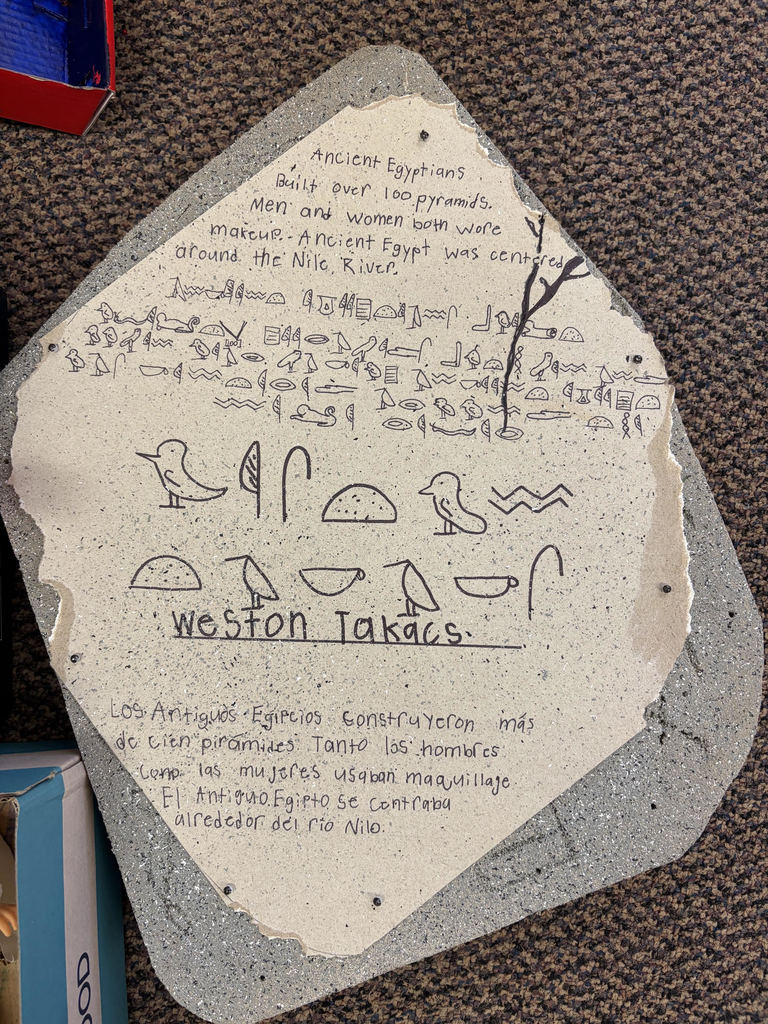 Ancient Egyptians
Built over 100 pyramids.
Men and women both wore
makeup. Ancient Egypt was centered
around the Nile River.
Weston Takacs.
Los Antiguos Egipcios construyeron más
de cien pirámides Tanto los hombres
como las mujeres usaban maquillaje
El Antiguo Egipto se centraba
alrededor del río Nilo.
OOD